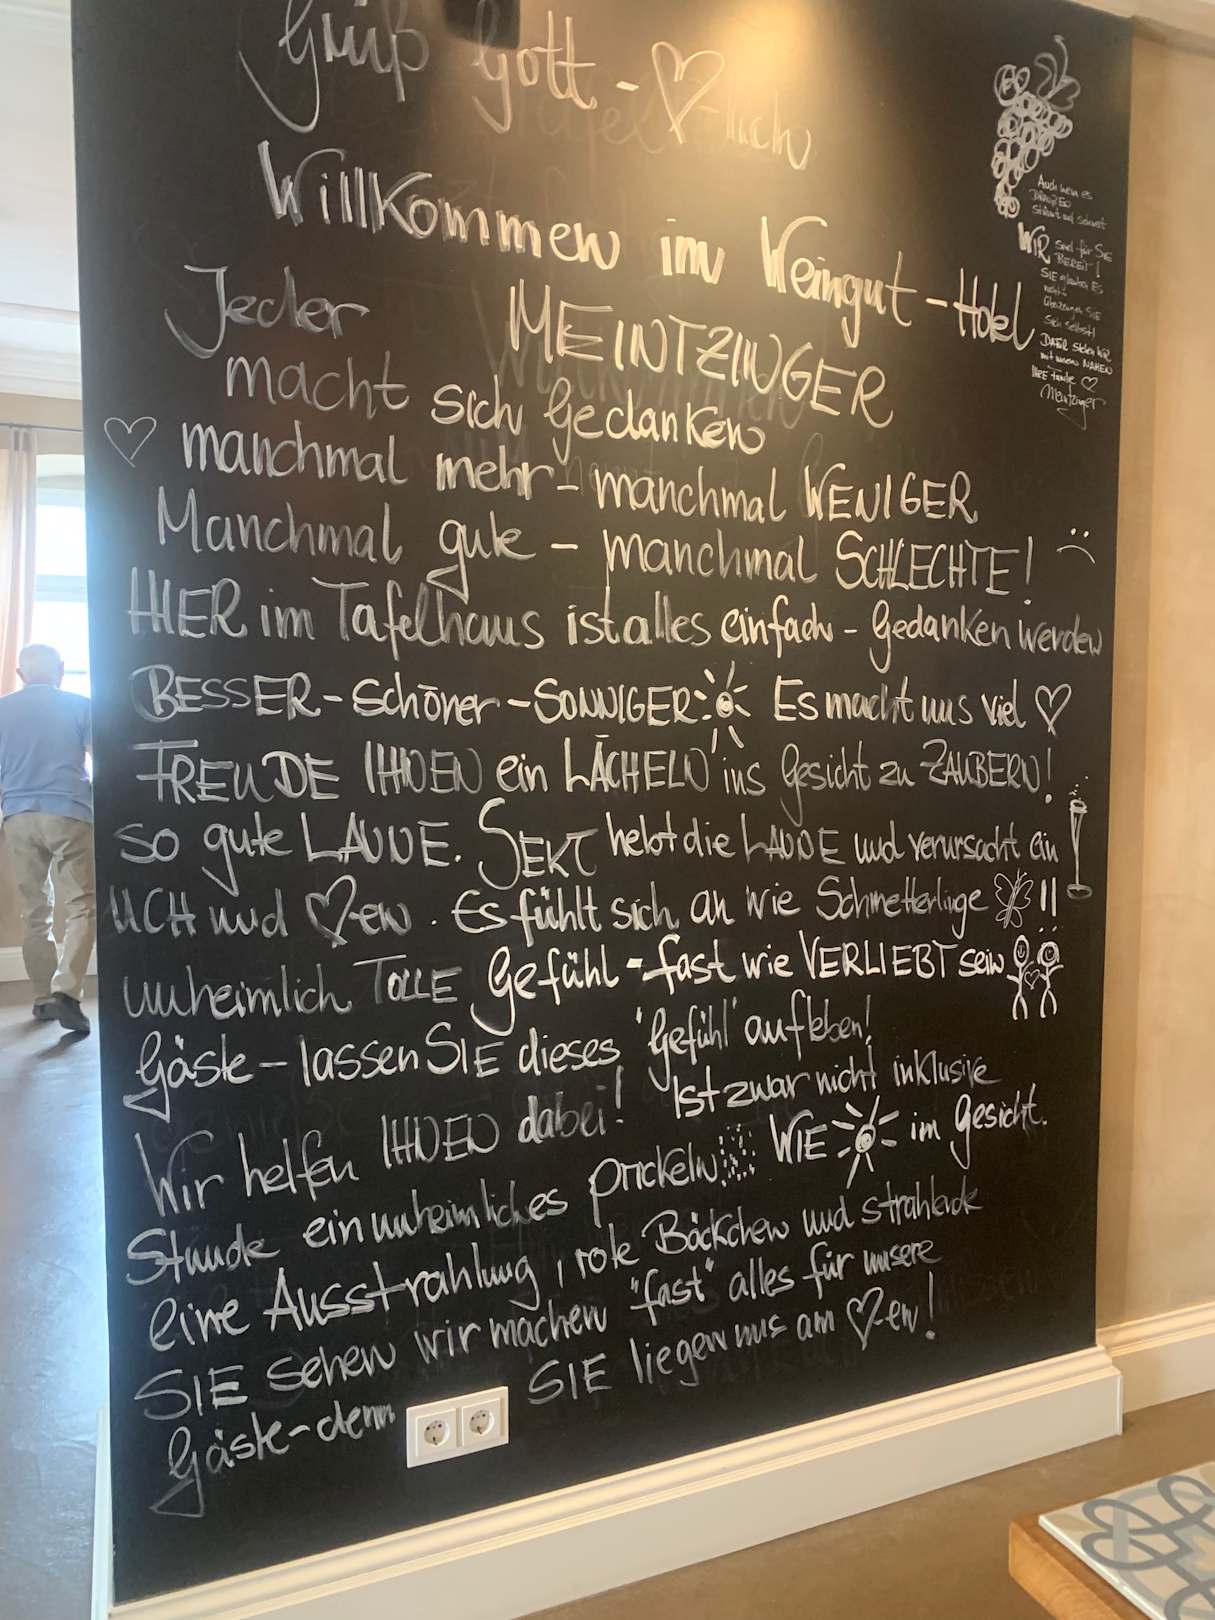 Grüß Gott - ♡-lich
Willkommen im Weingut-Hotel
MEINTZINGER
Jeder
macht sich Gedanken
♡ manchmal mehr - manchmal WENIGER
Manchmal gute - manchmal SCHLECHTE!
HIER im Tafelhaus ist alles einfach - Gedanken werden
BESSER - schöner - SONNIGER: Es macht uns viel ♡
FREUDE IHNEN ein LÄCHELN ins Gesicht zu ZAUBERN!
so gute LAUNE. SEKT hebt die LAUNE und verursacht ein
UCH und ♡-en. Es fühlt sich an wie Schmetterlinge !!
unheimlich TOLLE Gefühl - fast wie VERLIEBT sein
Gäste - lassen SIE dieses "Gefühl" aufleben!
Wir helfen IHNEN dabei! Ist zwar nicht inklusive
Stunde ein unheimliches prickeln WIE im Gesicht.
eine Ausstrahlung, rote Bäckchen und strahlende
SIE sehen wir machen "fast" alles für unsere
Gäste - denn SIE liegen uns am ♡-en!
Auch wenn es
DRAUßEN
stürmt und schneit
WIR sind für SIE
BEREIT!
SIE glauben ES
nicht?
Überzeugen SIE
sich selbst!
DAFÜR stehen WIR
mit unserem NAMEN
IHRE Familie ♡
Meintzinger